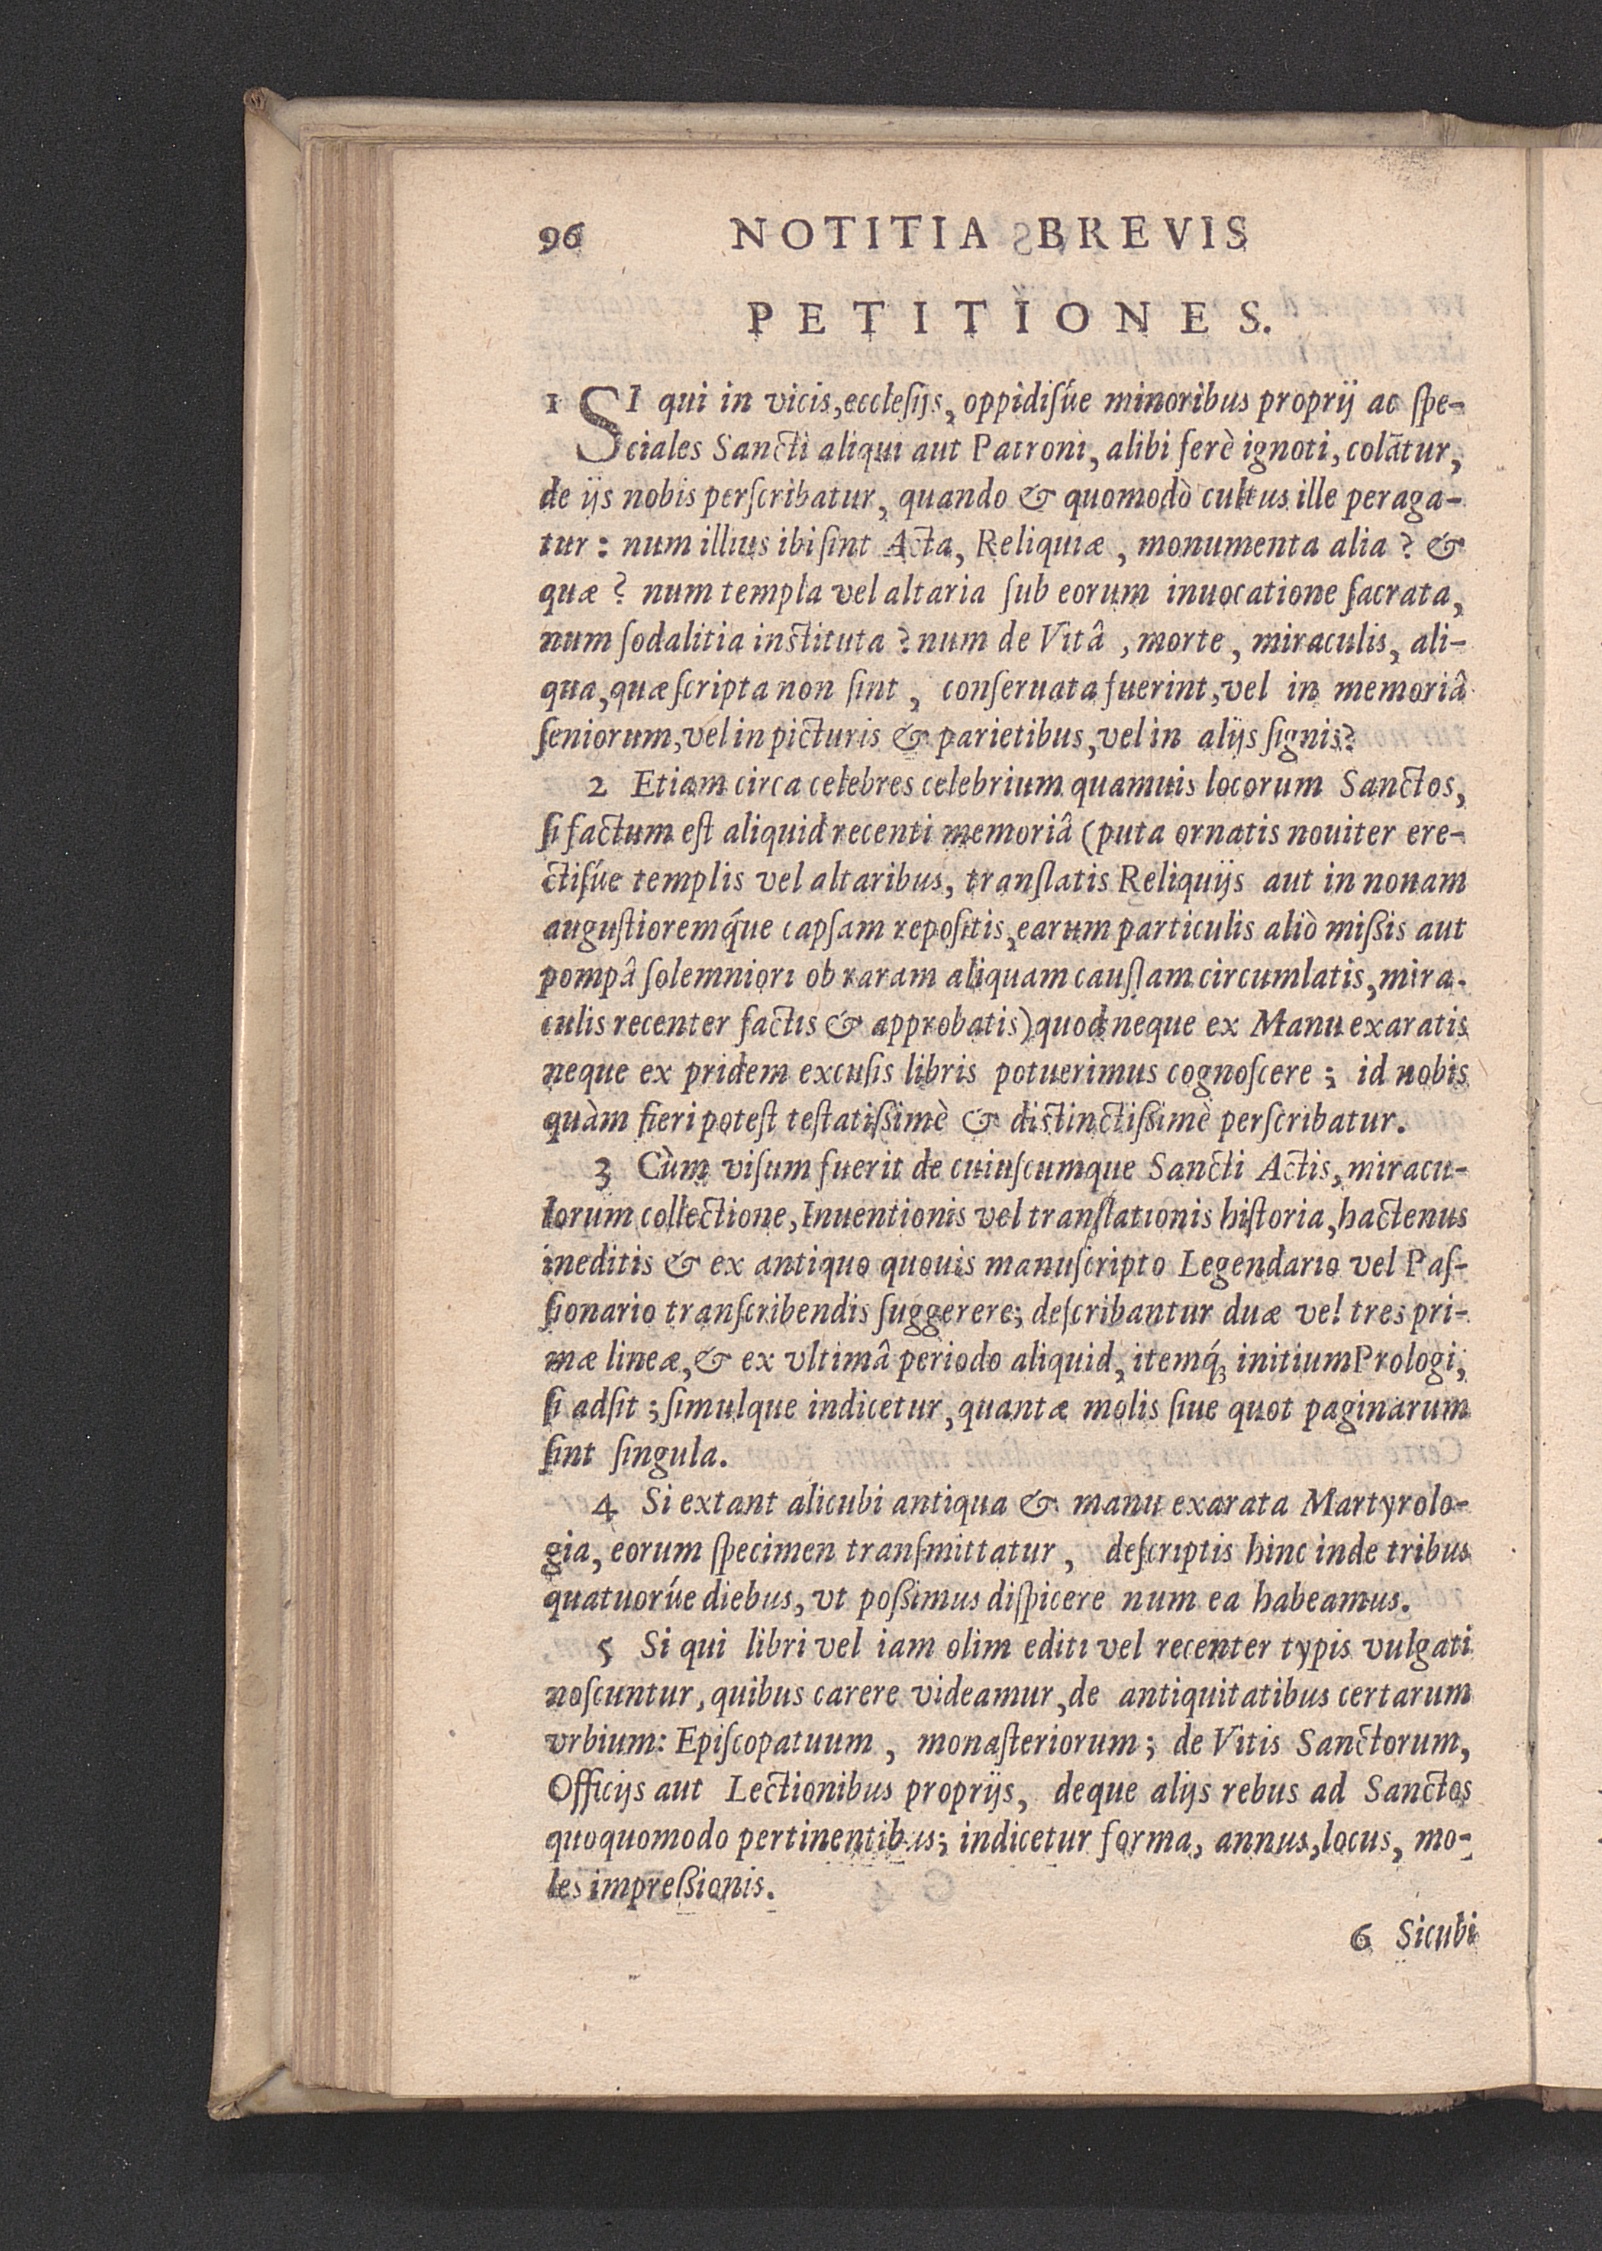 96 NOTITIA BREVIS
PETITIONES.
1 SI qui in vicis, ecclesijs, oppidisúe minoribus proprij ac spe-
ciales Sancti aliqui aut Patroni, alibi ferè ignoti, colātur,
de ijs nobis perscribatur, quando & quomodò cultus ille peraga-
tur: num illius ibi sint Acta, Reliquiæ, monumenta alia? &
quæ? num templa vel altaria sub eorum inuocatione sacrata,
num sodalitia instituta? num de Vitâ, morte, miraculis, ali-
qua, quæ scripta non sint, conseruata fuerint, vel in memoriâ
seniorum, vel in picturis & parietibus, vel in alijs signis?
2 Etiam circa celebres celebrium quamuis locorum Sanctos,
si factum est aliquid recenti memoriâ (puta ornatis nouiter ere-
ctisúe templis vel altaribus, translatis Reliquijs aut in nouam
augustioremq́ue capsam repositis, earum particulis aliò missis aut
pompâ solemniori ob raram aliquam caussam circumlatis, mira-
culis recenter factis & approbatis) quod neque ex Manu exaratis
neque ex pridem excusis libris potuerimus cognoscere; id nobis
quàm fieri potest testatissimè & distinctissimè perscribatur.
3 Cùm visum fuerit de cuiuscumque Sancti Actis, miracu-
lorum collectione, Inuentionis vel translationis historia, hactenus
ineditis & ex antiquo quouis manuscripto Legendario vel Pas-
sionario transcribendis suggerere; describantur duæ vel tres pri-
mæ lineæ, & ex vltimâ periodo aliquid, itemq́; initium Prologi,
si adsit; simulque indicetur, quantæ molis siue quot paginarum
sint singula.
4 Si extant alicubi antiqua & manu exarata Martyrolo-
gia, eorum specimen transmittatur, descriptis hinc inde tribus
quatuorúe diebus, vt possimus dispicere num ea habeamus.
5 Si qui libri vel iam olim editi vel recenter typis vulgati
noscuntur, quibus carere videamur, de antiquitatibus certarum
vrbium: Episcopatuum, monasteriorum; de Vitis Sanctorum,
Officijs aut Lectionibus proprijs, deque alijs rebus ad Sanctos
quoquomodo pertinentibus; indicetur forma, annus, locus, mo-
les impressionis.
6 Sicubi